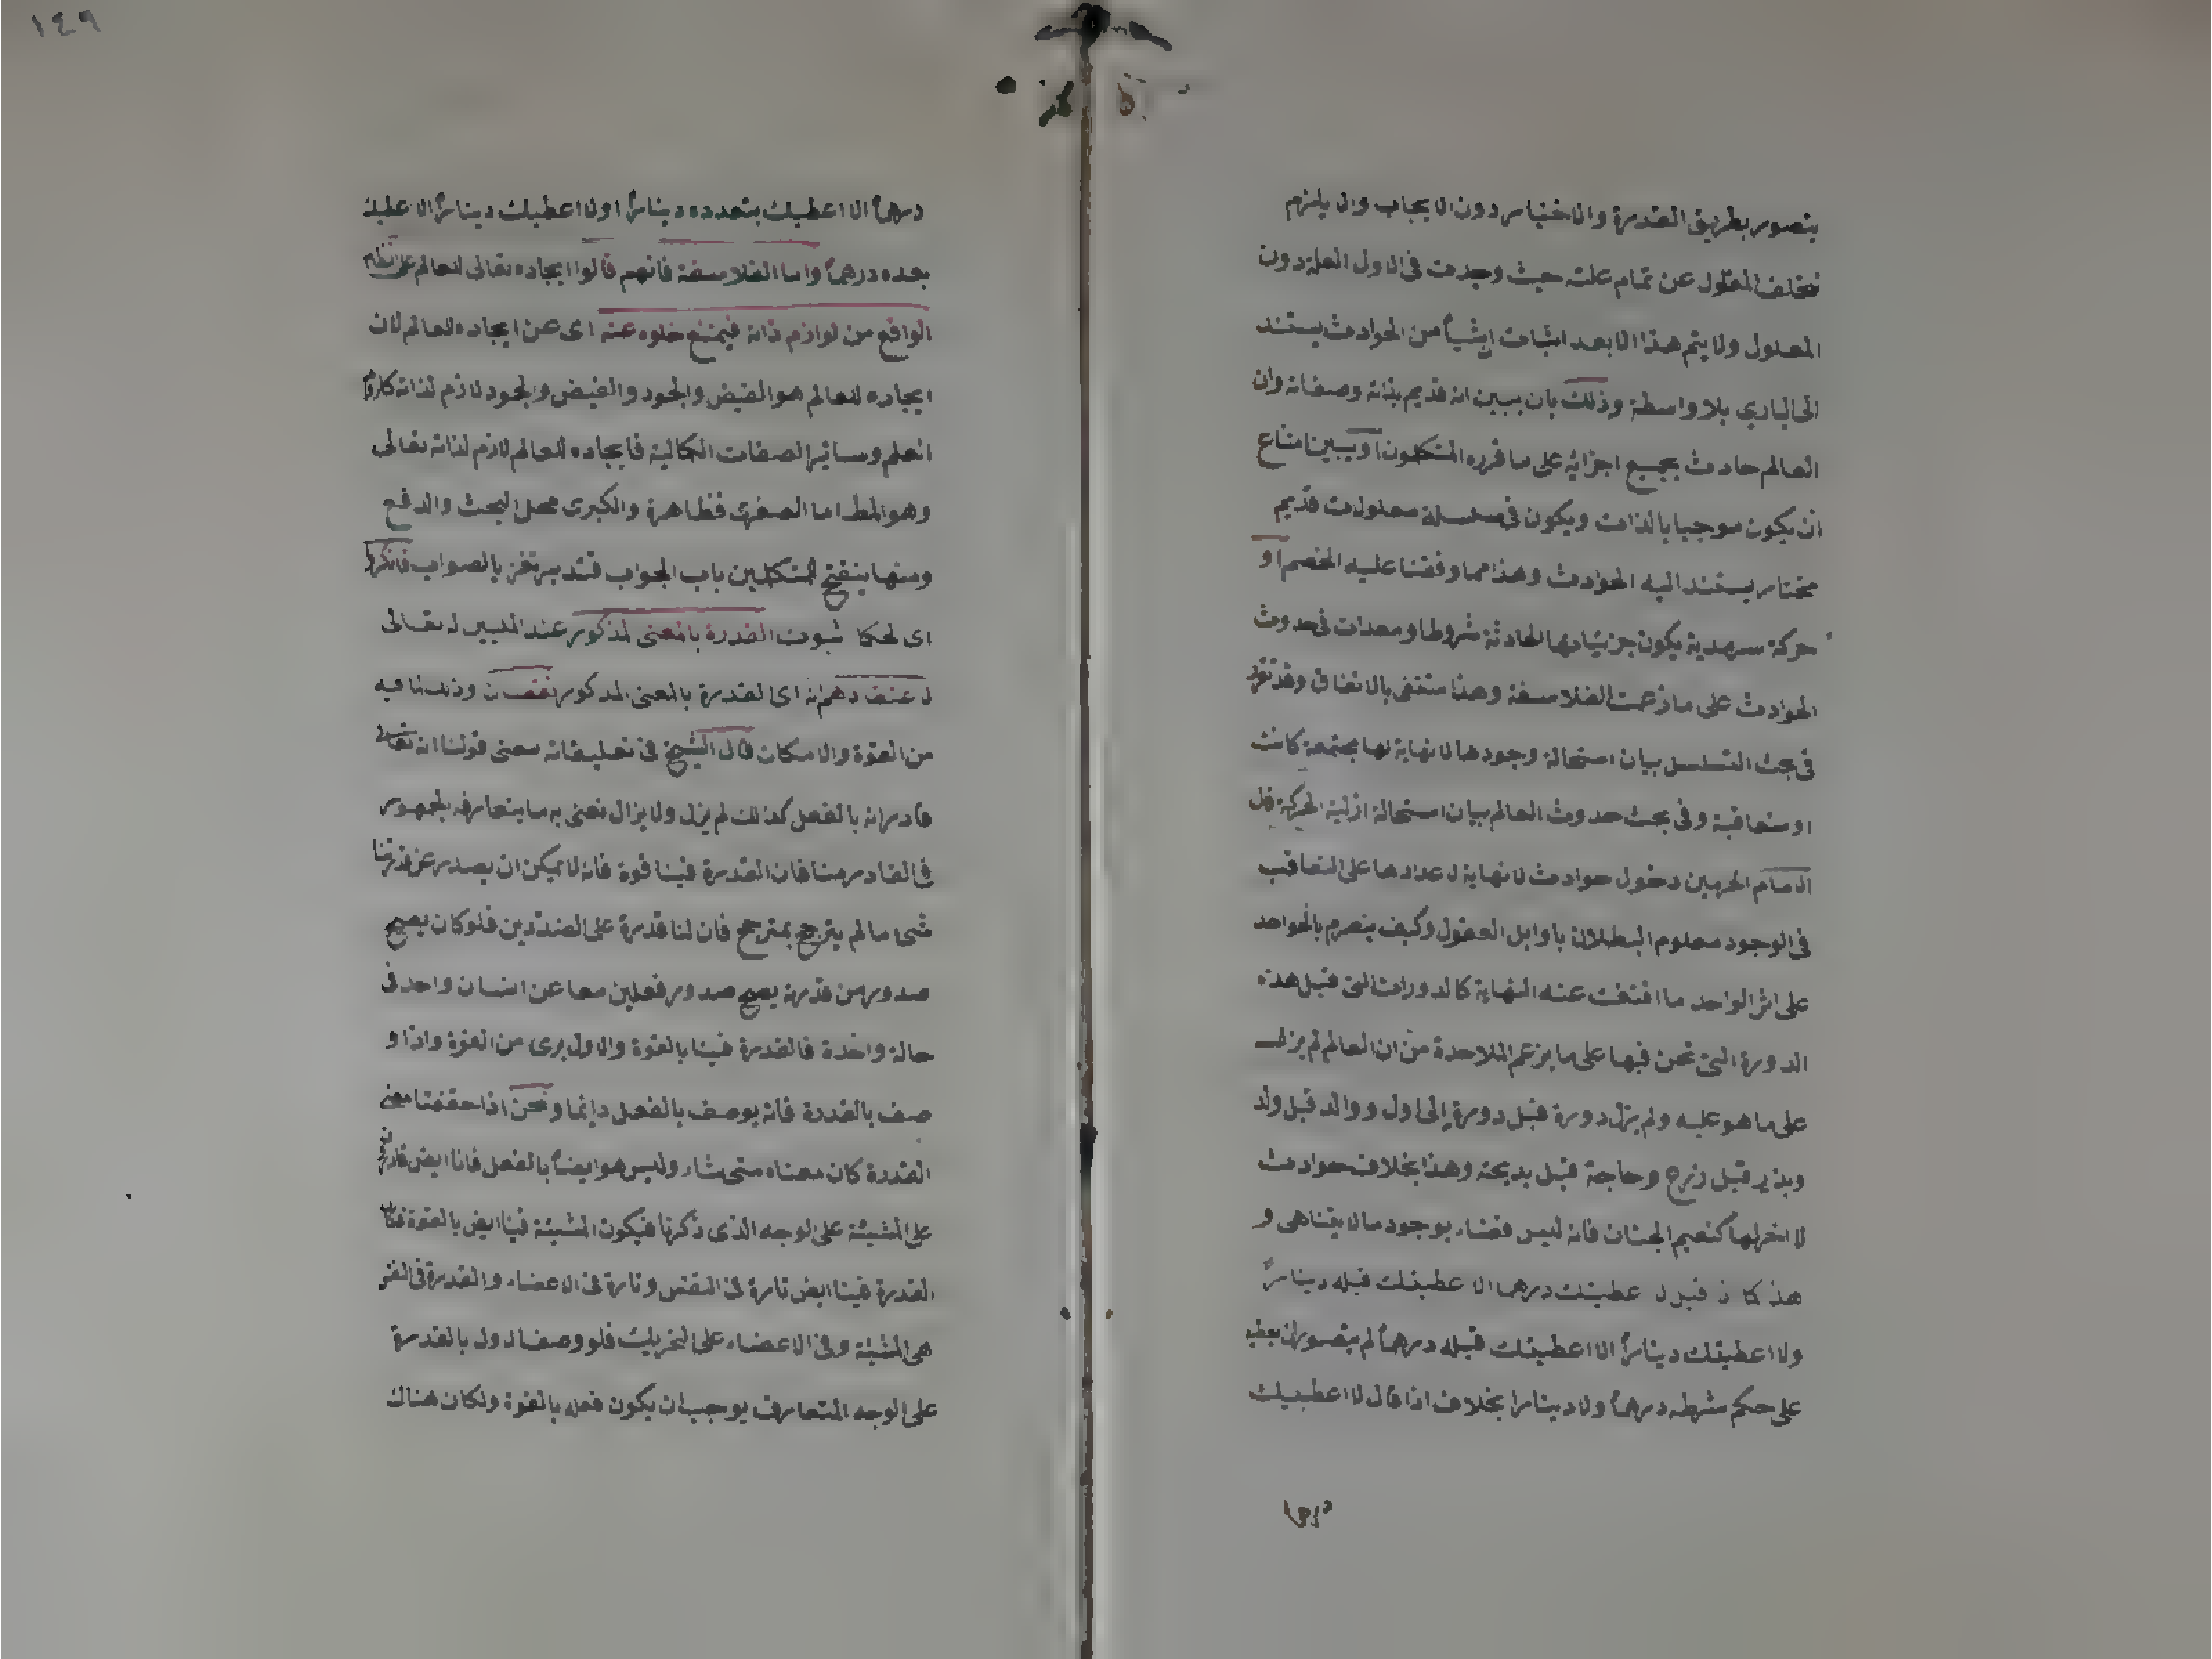 يتصور بطريق القدرة والاختيار دون الايجاب والا يلزم
تخلف المعلول عن تمام علته حيث وجدت في الاول العلة دون
المعلول ولا يتم هذا الا بعد اثبات ان شيأ من الحوادث يستند
الى الباري بلا واسطة وذلك بان يبين انه قديم بذاته وصفاته وان
العالم حادث بجميع اجزائه على ما قرره المتكلمون او يبين امتناع
ان يكون موجبا بالذات ويكون في سلسلة معلولات قديم
مختار يستند اليه الحوادث وهذا مما وفقنا عليه الخصم او
حركة سرمدية يكون جزئياتها الحادثة شروطا ومعدات في حدوث
الحوادث على ما زعمت الفلاسفة وهذا منتفى بالاتفاق وقد تقرر
في بحث التسلسل بيان استحالة وجود ما لا نهاية لها مجتمعة كانت
او متعاقبة وفي بحث حدوث العالم بيان استحالة ازلية الحركة قال
الامام الحرمين دخول حوادث لا نهاية لاعدادها على التعاقب
في الوجود معلوم البطلان باوايل العقول وكيف ينصرم بالواحد
على اثر الواحد ما انتفت عنه النهاية كالدورات التي قبل هذه
الدورة التي نحن فيها على ما يزعم الملاحدة من ان العالم لم يزل
على ما هو عليه ولم يزل دورة قبل دورة الى اول ووالد قبل ولد
وبذر قبل زرع وحاجة قبل بديحة وهذا بخلاف حوادث
لا اخر لها كنعيم الجنان فانه ليس قضاء بوجود ما لا يتناهى و
هذا كما اذا قيل لا عطيتك درهما الا عطيتك قبله دينارا
ولا اعطيتك دينارا الا اعطيتك قبله درهما لم يتصور ان يعطيه
على حكم شرطه درهما ولا دينارا بخلاف اذا قال لا اعطيك
درهما
١٤٩
درهما الا اعطيك بعده دينارا اولا اعطيك دينارا الا اعطيك
بعده درهما واما الفلاسفة فانهم قالوا ايجاده تعالى للعالم على النظام
الواقع من لوازم ذاته فيمتنع خلوه عنه اى عن ايجاده للعالم لان
ايجاده للعالم هو الفيض والجود والفيض والجود لازم لذاته كلزوم
العلم وسائر الصفات الكمالية فايجاده للعالم لازم لذاته تعالى
وهو المط اما الصغرى فظاهرة والكبرى محل البحث والدفع
ومنها ينفتح للمتكلمين باب الجواب فتدبر تفز بالصواب فانكروا
اى الحكما ثبوت القدرة بالمعنى المذكور عند المليين له تعالى
لاعتقادهم انه اى القدرة بالمعنى المذكور نقصان وذلك لما فيه
من القوة والامكان قال الشيخ في تعليقاته معنى قولنا انه تعالى
قادر انه بالفعل كذلك لم يزل ولا يزال نعنى به ما يتعارفه الجمهور
في القادر منا فان القدرة فينا قوة فانه لا يمكن ان يصدر عن قدرتنا
شىء ما لم يترجح بمترجح فان لنا قدرة على الضدين فلو كان يصح
صدور من قدرة يصح صدور فعلين معا عن انسان واحد في
حالة واحدة فالقدرة فينا بالقوة والاول برى من القوة واذا و
صف بالقدرة فانه يوصف بالفعل دايما ونحن اذا حققنا معنى
القدرة كان معناه متى يشاء وليس هو ايضا بالفعل فانا ايض قادرون
على المشيئة على الوجه الذى ذكرنا فيكون المشيئة فينا ايض بالقوة فكان
القدرة فينا ايض تارة في النفس وتارة في الاعضاء والقدرة في النفس
هى المشيئة وفي الاعضاء على التحريك فلو وصف الاول بالقدرة
على الوجه المتعارف يوجب ان يكون فعله بالقوة ولكان هناك